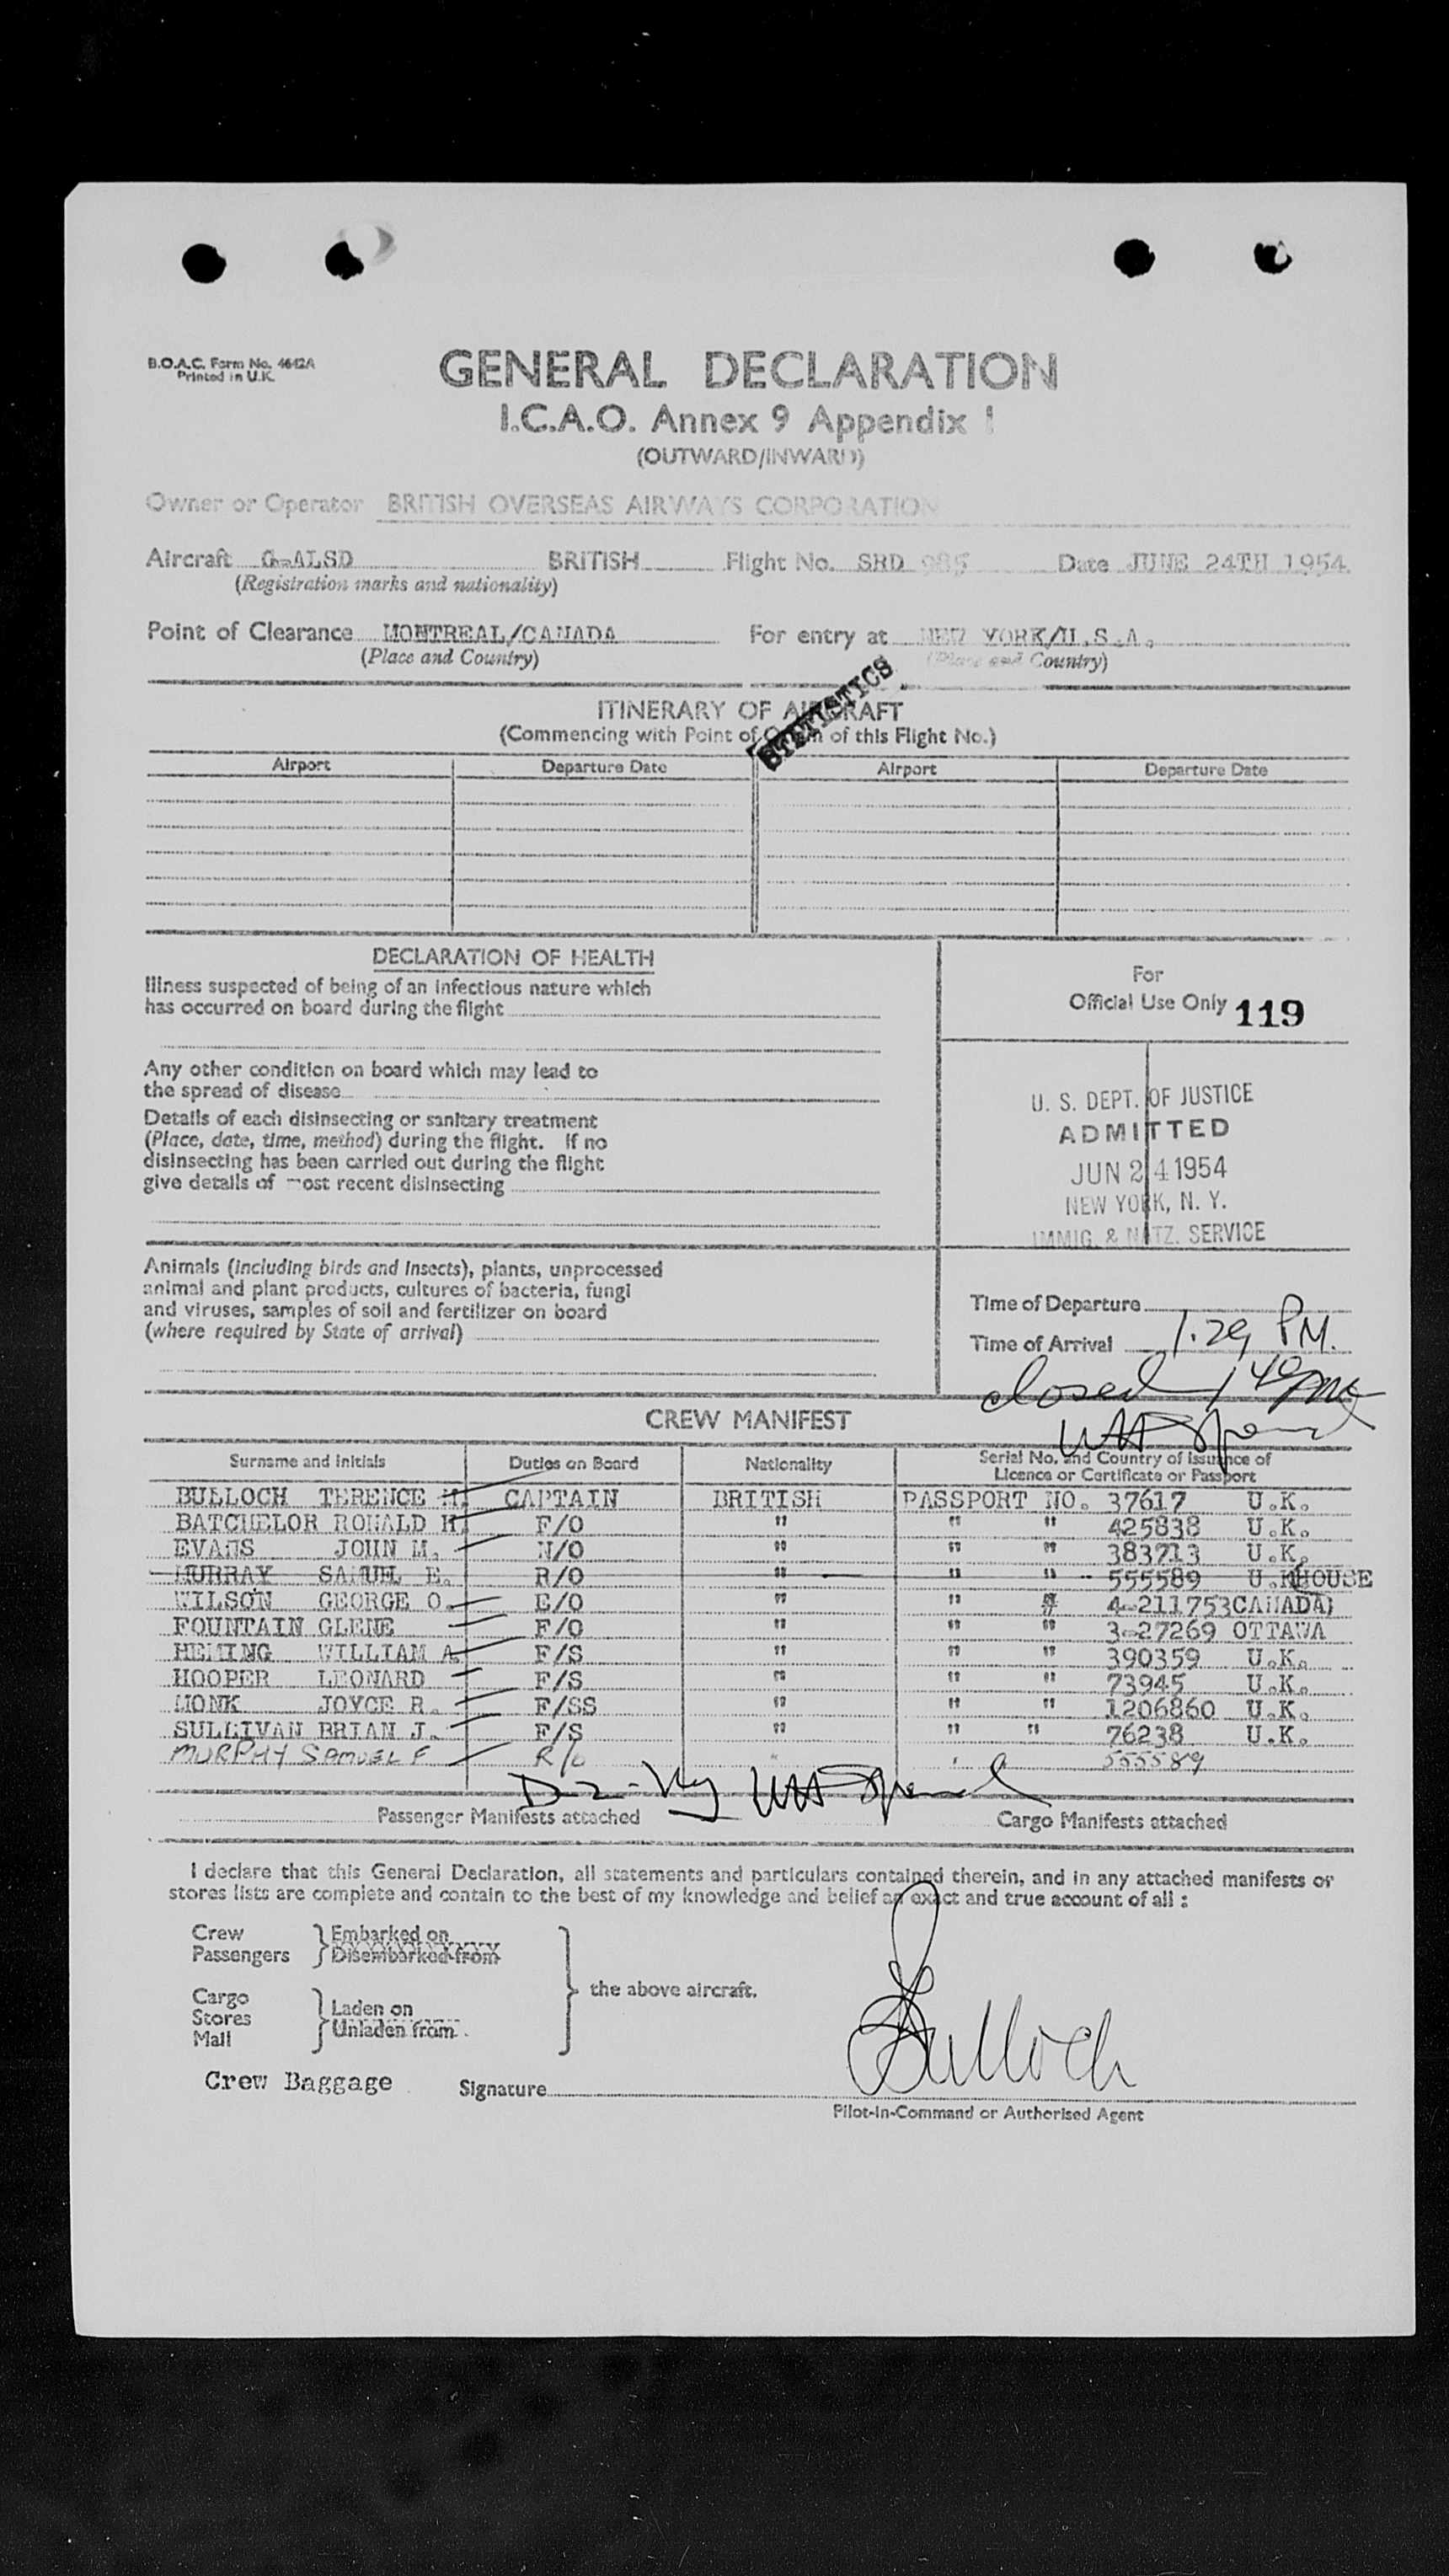 B.O.A.C. Form No. 4642A
Printed in U.K.
GENERAL DECLARATION
I.C.A.O. Annex 9 Appendix 1
(OUTWARD/INWARD)
Owner or Operator BRITISH OVERSEAS AIRWAYS CORPORATION
Aircraft G-ALSD BRITISH Flight No. SRD 985 Date JUNE 24TH 1954
(Registration marks and nationality)
Point of Clearance MONTREAL/CANADA For entry at NEW YORK/U.S.A.
(Place and Country) (Place and Country)
STATISTICS
ITINERARY OF AIRCRAFT
(Commencing with Point of Origin of this Flight No.)
Airport Departure Date Airport Departure Date
DECLARATION OF HEALTH
Illness suspected of being of an infectious nature which
has occurred on board during the flight
Any other condition on board which may lead to
the spread of disease
Details of each disinsecting or sanitary treatment
(Place, date, time, method) during the flight. If no
disinsecting has been carried out during the flight
give details of most recent disinsecting
For
Official Use Only 119
U. S. DEPT. OF JUSTICE
ADMITTED
JUN 24 1954
NEW YORK, N. Y.
IMMIG. & NATZ. SERVICE
Animals (including birds and insects), plants, unprocessed
animal and plant products, cultures of bacteria, fungi
and viruses, samples of soil and fertilizer on board
(where required by State of arrival)
Time of Departure
Time of Arrival 1.29 PM.
closed 1 40 PM
CREW MANIFEST
Surname and Initials Duties on Board Nationality Serial No. and Country of issuance of
Licence or Certificate or Passport
BULLOCH TERENCE M. CAPTAIN BRITISH PASSPORT NO. 37617 U.K.
BATCHELOR RONALD H. F/O " " " 425838 U.K.
EVANS JOHN M. N/O " " " 383713 U.K.
MURRAY SAMUEL E. R/O " " " 555589 U.K(HOUSE
WILSON GEORGE O. E/O " " " 4-211753CANADA)
FOUNTAIN GLENE F/O " " " 3-27269 OTTAWA
HEMING WILLIAM A. F/S " " " 390359 U.K.
HOOPER LEONARD F/S " " " 73945 U.K.
MONK JOYCE R. F/SS " " " 1206860 U.K.
SULLIVAN BRIAN J. F/S " " " 76238 U.K.
MURPHY SAMUEL F R/O " " 555589
Passenger Manifests attached Cargo Manifests attached
I declare that this General Declaration, all statements and particulars contained therein, and in any attached manifests or
stores lists are complete and contain to the best of my knowledge and belief an exact and true account of all :
Crew Embarked on
Passengers Disembarked from
the above aircraft.
Cargo
Stores Laden on
Mail Unladen from
Crew Baggage Signature Bulloch
Pilot-in-Command or Authorised Agent